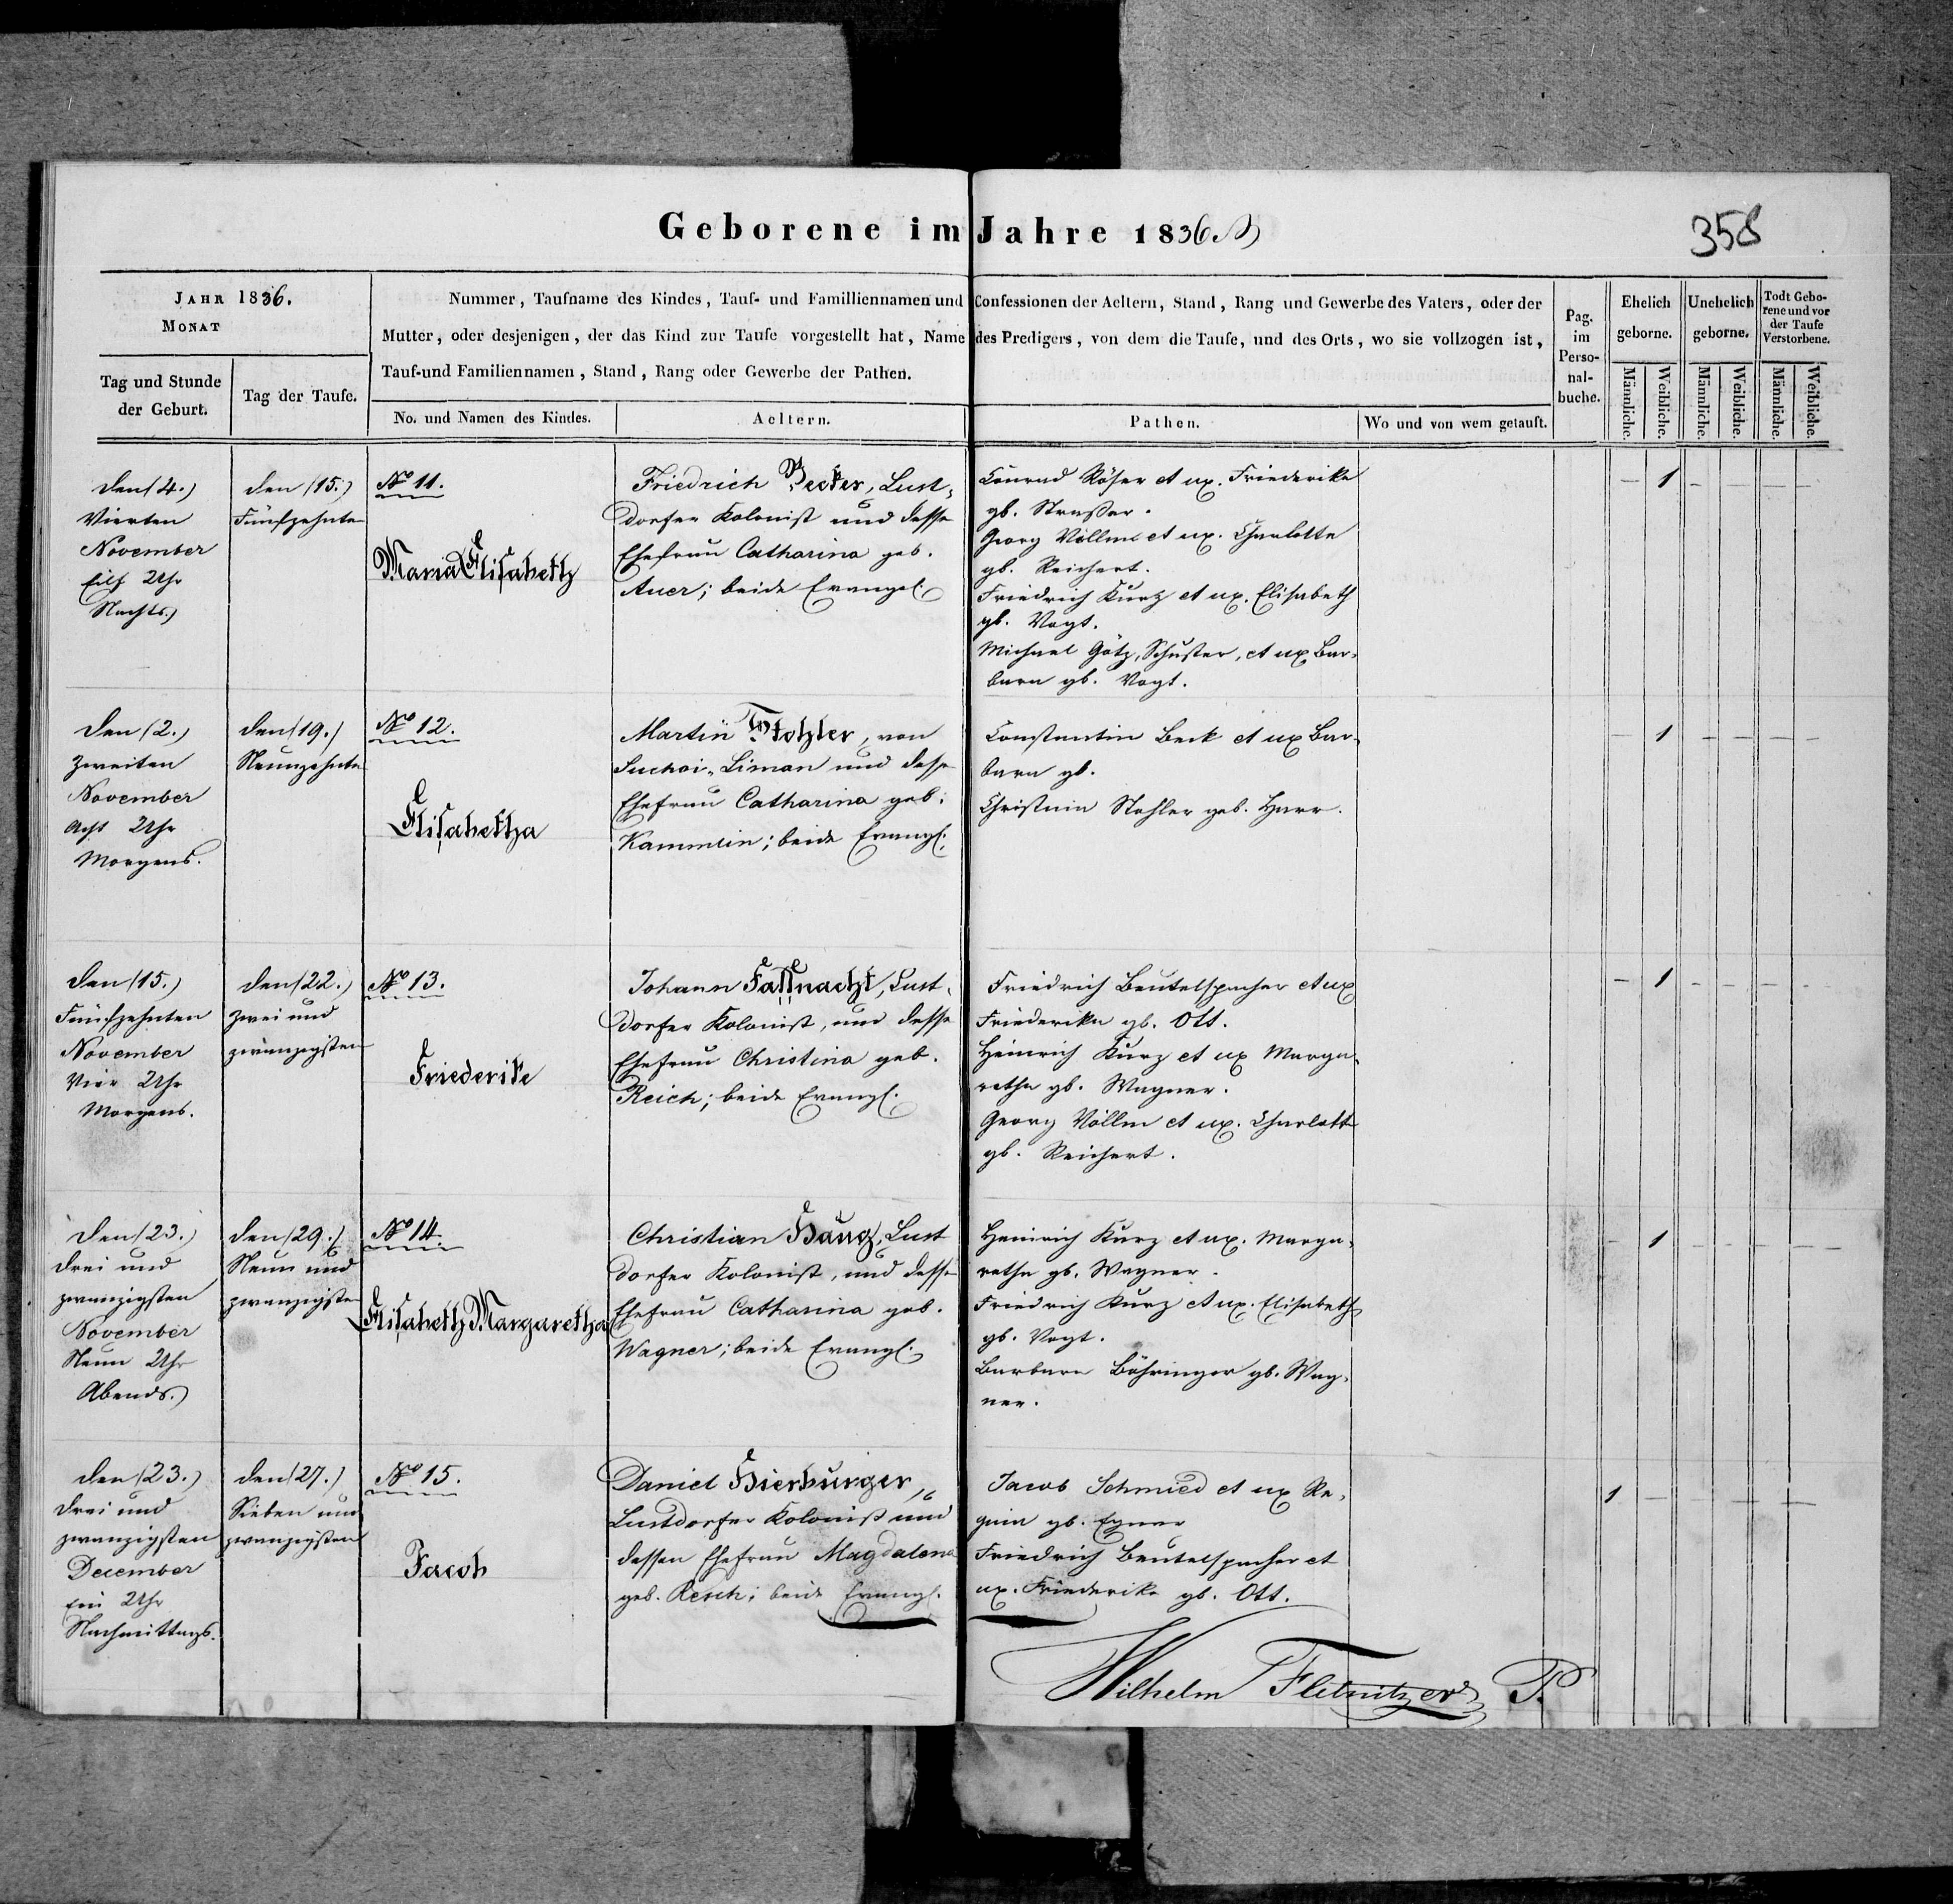 Geborene im Jahre 1836
358
JAHR 1836.
MONAT
Tag und Stunde
der Geburt.
Tag der Taufe.
Nummer, Taufname des Kindes, Tauf- und Familliennamen und Confessionen der Aeltern, Stand, Rang und Gewerbe des Vaters, oder der
Mutter, oder desjenigen, der das Kind zur Taufe vorgestellt hat, Name des Predigers, von dem die Taufe, und des Orts, wo sie vollzogen ist,
Tauf-und Familiennamen, Stand, Rang oder Gewerbe der Pathen.
No. und Namen des Kindes.
Aeltern.
Pathen.
Wo und von wem getauft.
Pag.
im
Perso-
nal-
buche.
Ehelich
geborne.
Unehelich
geborne.
Todt Gebo-
rene und vor
der Taufe
Verstorbene.
Männliche.
Weibliche.
Männliche.
Weibliche.
Männliche.
Weibliche.
den (4.)
Vierten
November
Eilf Uhr
Nachts.
den (15.)
Fünfzehnten
No 11.
Maria Elisabeth
Friedrich Becker, Lust-
dorfer Kolonist und dessen
Ehefrau Catharina geb.
Auer; beide Evangel.
Conrad Röser et ux. Friederike
gb. Straßer.
Georg Völlm et ux. Charlotte
gb. Reichert.
Friedrich Kurz et ux. Elisabeth
gb. Vogt.
Michael Götz, Schuster, et ux Bar-
bara gb. Vogt.
– 1 – – – –
den (2.)
Zweiten
November
Acht Uhr
Morgens.
den (19.)
Neunzehnten
No 12.
Elisabetha
Martin, von
Suchoi-Liman und dessen
Ehefrau Catharina geb.
Kammlin; beide Evangl.
Constantin Beck et ux Bar-
bara gb.
Christina geb. Harr.
– 1 – – – –
den (15.)
Fünfzehnten
November
Vier Uhr
Morgens.
den (22.)
Zwei und
zwanzigsten
No 13.
Friederike
Johann Faßnacht, Lust-
dorfer Kolonist, und dessen
Ehefrau Christina geb.
Reich; beide Evangl.
Friedrich Beutelspacher et ux
Friederika gb. Ott.
Heinrich Kurz et ux Marga-
retha gb. Wagner.
Georg Völlm et ux. Charlotte
gb. Reichert.
– 1 – – – –
den (23.)
Drei und
zwanzigsten
November
Neun Uhr
Abends.
den (29.)
Neun und
zwanzigsten
No 14.
Elisabeth Margaretha
Christian Haug, Lust
dorfer Kolonist, und dessen
Ehefrau Catharina geb.
Wagner; beide Evangl.
Heinrich Kurz et ux. Marga-
retha gb. Wagner.
Friedrich Kurz et ux. Elisabeth
gb. Vogt.
Barbara Böhringer gb. Wag-
ner.
– 1 – – – –
den (23.)
Drei und
zwanzigsten
December
Ein Uhr
Nachmittags.
den (27.)
Sieben und
zwanzigsten
No 15.
Jacob
Daniel Hierburger,
Lustdorfer Kolonist und
dessen Ehefrau Magdalena
geb. Resch; beide Evangl.
Jacob Schmied et ux Re-
gina gb.
Friedrich Beutelspacher et
ux. Friederike gb. Ott.
1 – – – – –
Wilhelm Fletnitzer P.